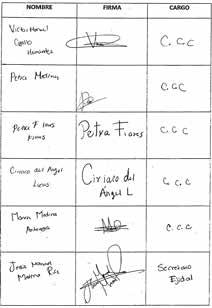 NOMBRE FIRMA CARGO
Victor Manuel
Hernandez
C. C. C
Petra Medina
C. C. C
Petra Flores
Flores
Petra Flores
C. C. C
Ciriaco del Angel
Lucas
Ciriaco del
Ángel L
C. C. C
Maria Medina
C. C. C
Jose Manuel
Medina
Secretario
Ejidal